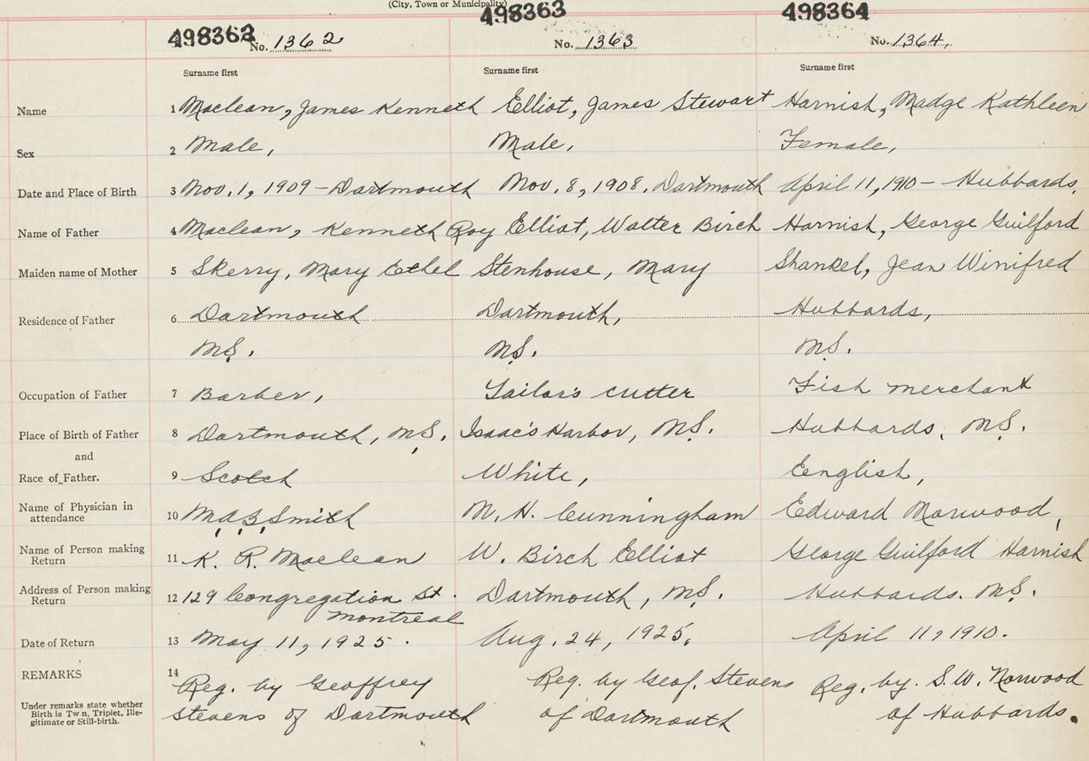 (City, Town or Municipality)
498362 498363 498364
No. 1362 No. 1363 No. 1364.
Surname first Surname first Surname first
Name 1 Maclean, James Kenneth Elliot, James Stewart Harnish, Madge Kathleen
Sex 2 Male, Male, Female,
Date and Place of Birth 3 Nov. 1, 1909 - Dartmouth Nov. 8, 1908. Dartmouth April 11, 1910 - Hubbards.
Name of Father 4 Maclean, Kenneth Roy Elliot, Walter Birch Harnish, George Guilford
Maiden name of Mother 5 Skerry, Mary Ethel Stenhouse, Mary Shankel, Jean Winifred
Residence of Father 6 Dartmouth Dartmouth, Hubbards,
N.S. N.S. N.S.
Occupation of Father 7 Barber, Tailor's cutter Fish merchant
Place of Birth of Father 8 Dartmouth, N.S. Isaac's Harbor, N.S. Hubbards. N.S.
and
Race of Father. 9 Scotch White, English,
Name of Physician in
attendance 10 M.A.B. Smith M. H. Cunningham Edward Morwood,
Name of Person making
Return 11 K. R. Maclean W. Birch Elliot George Guilford Harnish
Address of Person making
Return 12 129 Congregation St. Dartmouth, N.S. Hubbards. N.S.
Montreal
Date of Return 13 May 11, 1925. Aug. 24, 1925. April 11, 1910.
REMARKS 14 Reg. by Geoffrey Reg. by Geof. Stevens Reg. by. S.W. Norwood
Under remarks state whether
Birth is Twin, Triplet, Ille-
gitimate or Still-birth.
Stevens of Dartmouth of Dartmouth of Hubbards.